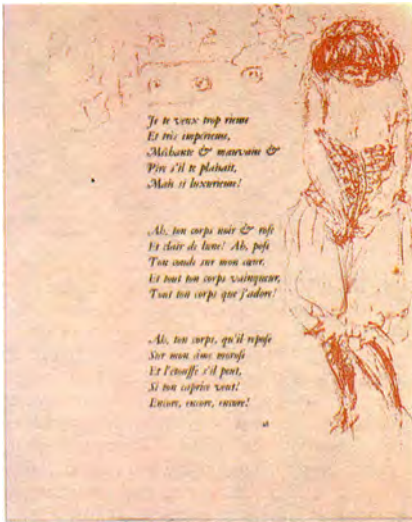 Je te veux trop rieuse
Et très impérieuse,
Méchante & mauvaise &
Pire s'il te plaisait,
Mais si luxurieuse!
Ah, ton corps noir & rose
Et clair de lune! Ah, pose
Ton coude sur mon cœur,
Et tout ton corps vainqueur,
Tout ton corps que j'adore!
Ah, ton corps, qu'il repose
Sur mon âme morose
Et l'étouffe s'il peut,
Si ton caprice veut!
Encore, encore, encore!